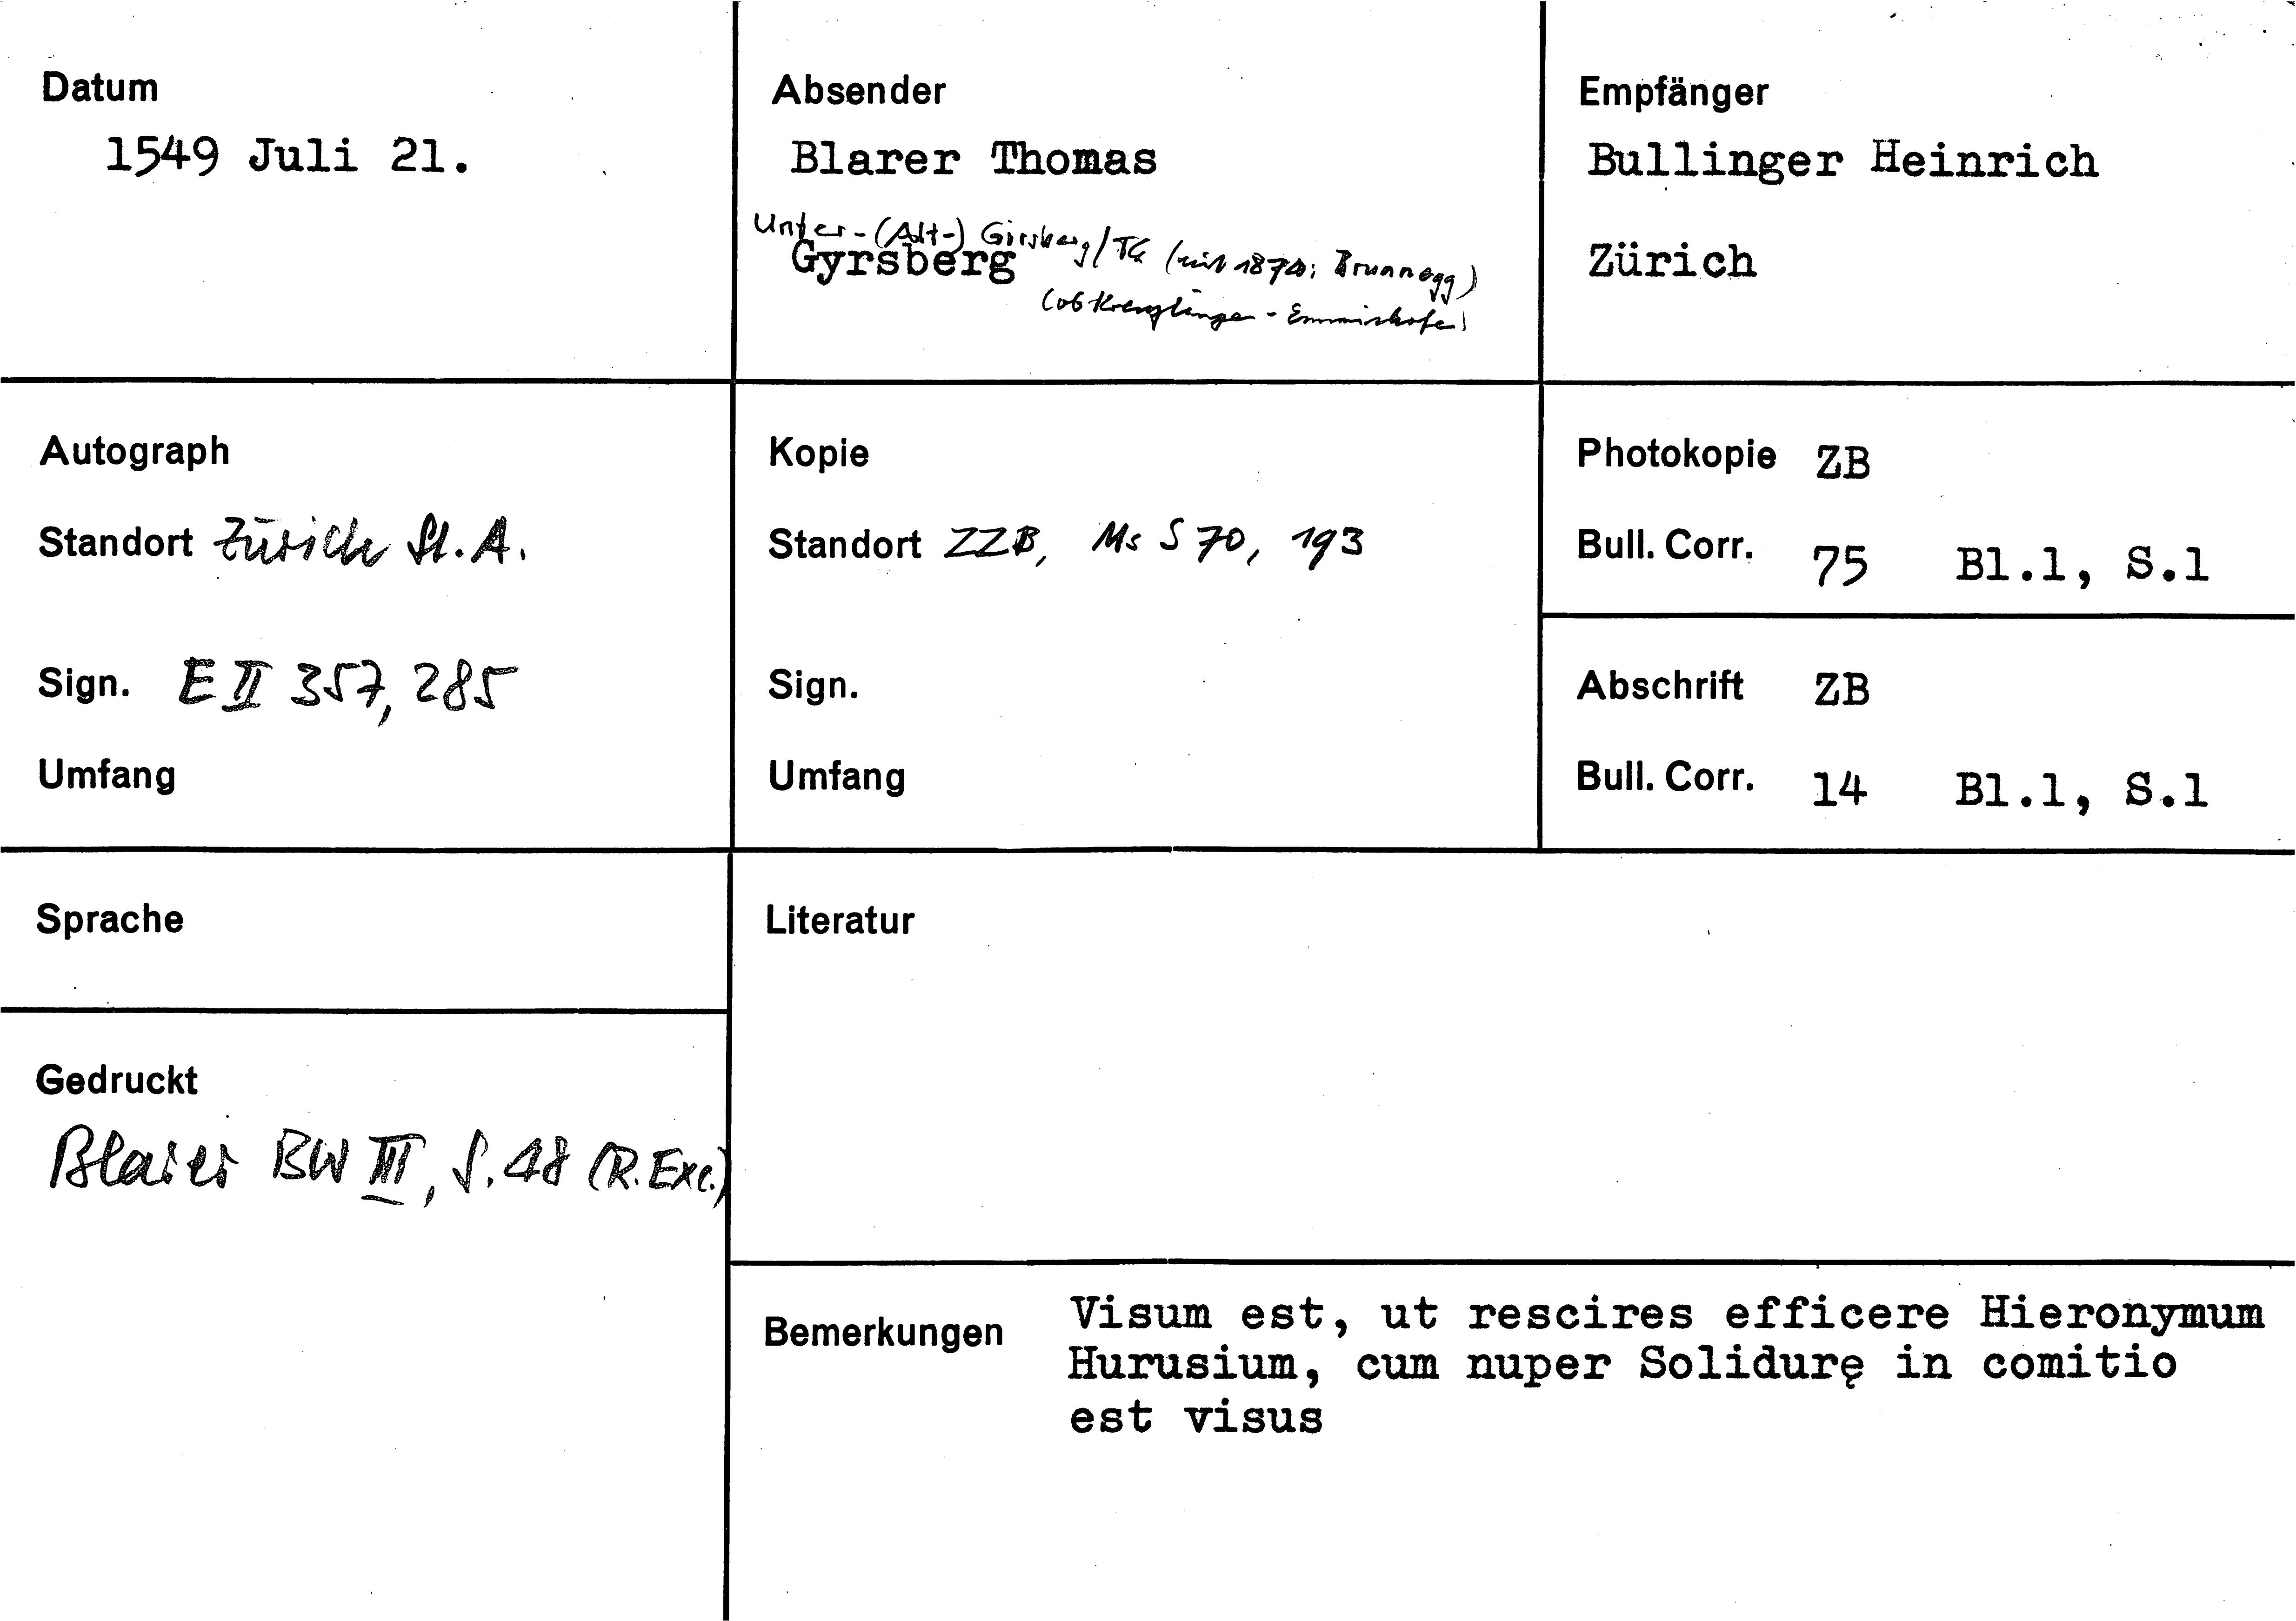 Datum
1549 Juli 21.
Absender
Blarer Thomas
Unter-(Alt-) Girsberg/TG (seit 1874: Brunnegg)
Gyrsberg
(ob Kreuzlingen - Emmishofen)
Empfänger
Bullinger Heinrich
Zürich
Autograph
Standort Zürich St.A.
Sign. E II 357, 285
Umfang
Kopie
Standort ZZB, Ms S 70, 193
Sign.
Umfang
Photokopie ZB
Bull. Corr. 75 Bl.1, S.1
Abschrift ZB
Bull. Corr. 14 Bl.1, S.1
Sprache
Literatur
Gedruckt
Blarer BW III, S. 48 (R. Exc.)
Bemerkungen Visum est, ut rescires efficere Hieronymum
Hurusium, cum nuper Solidurę in comitio
est visus